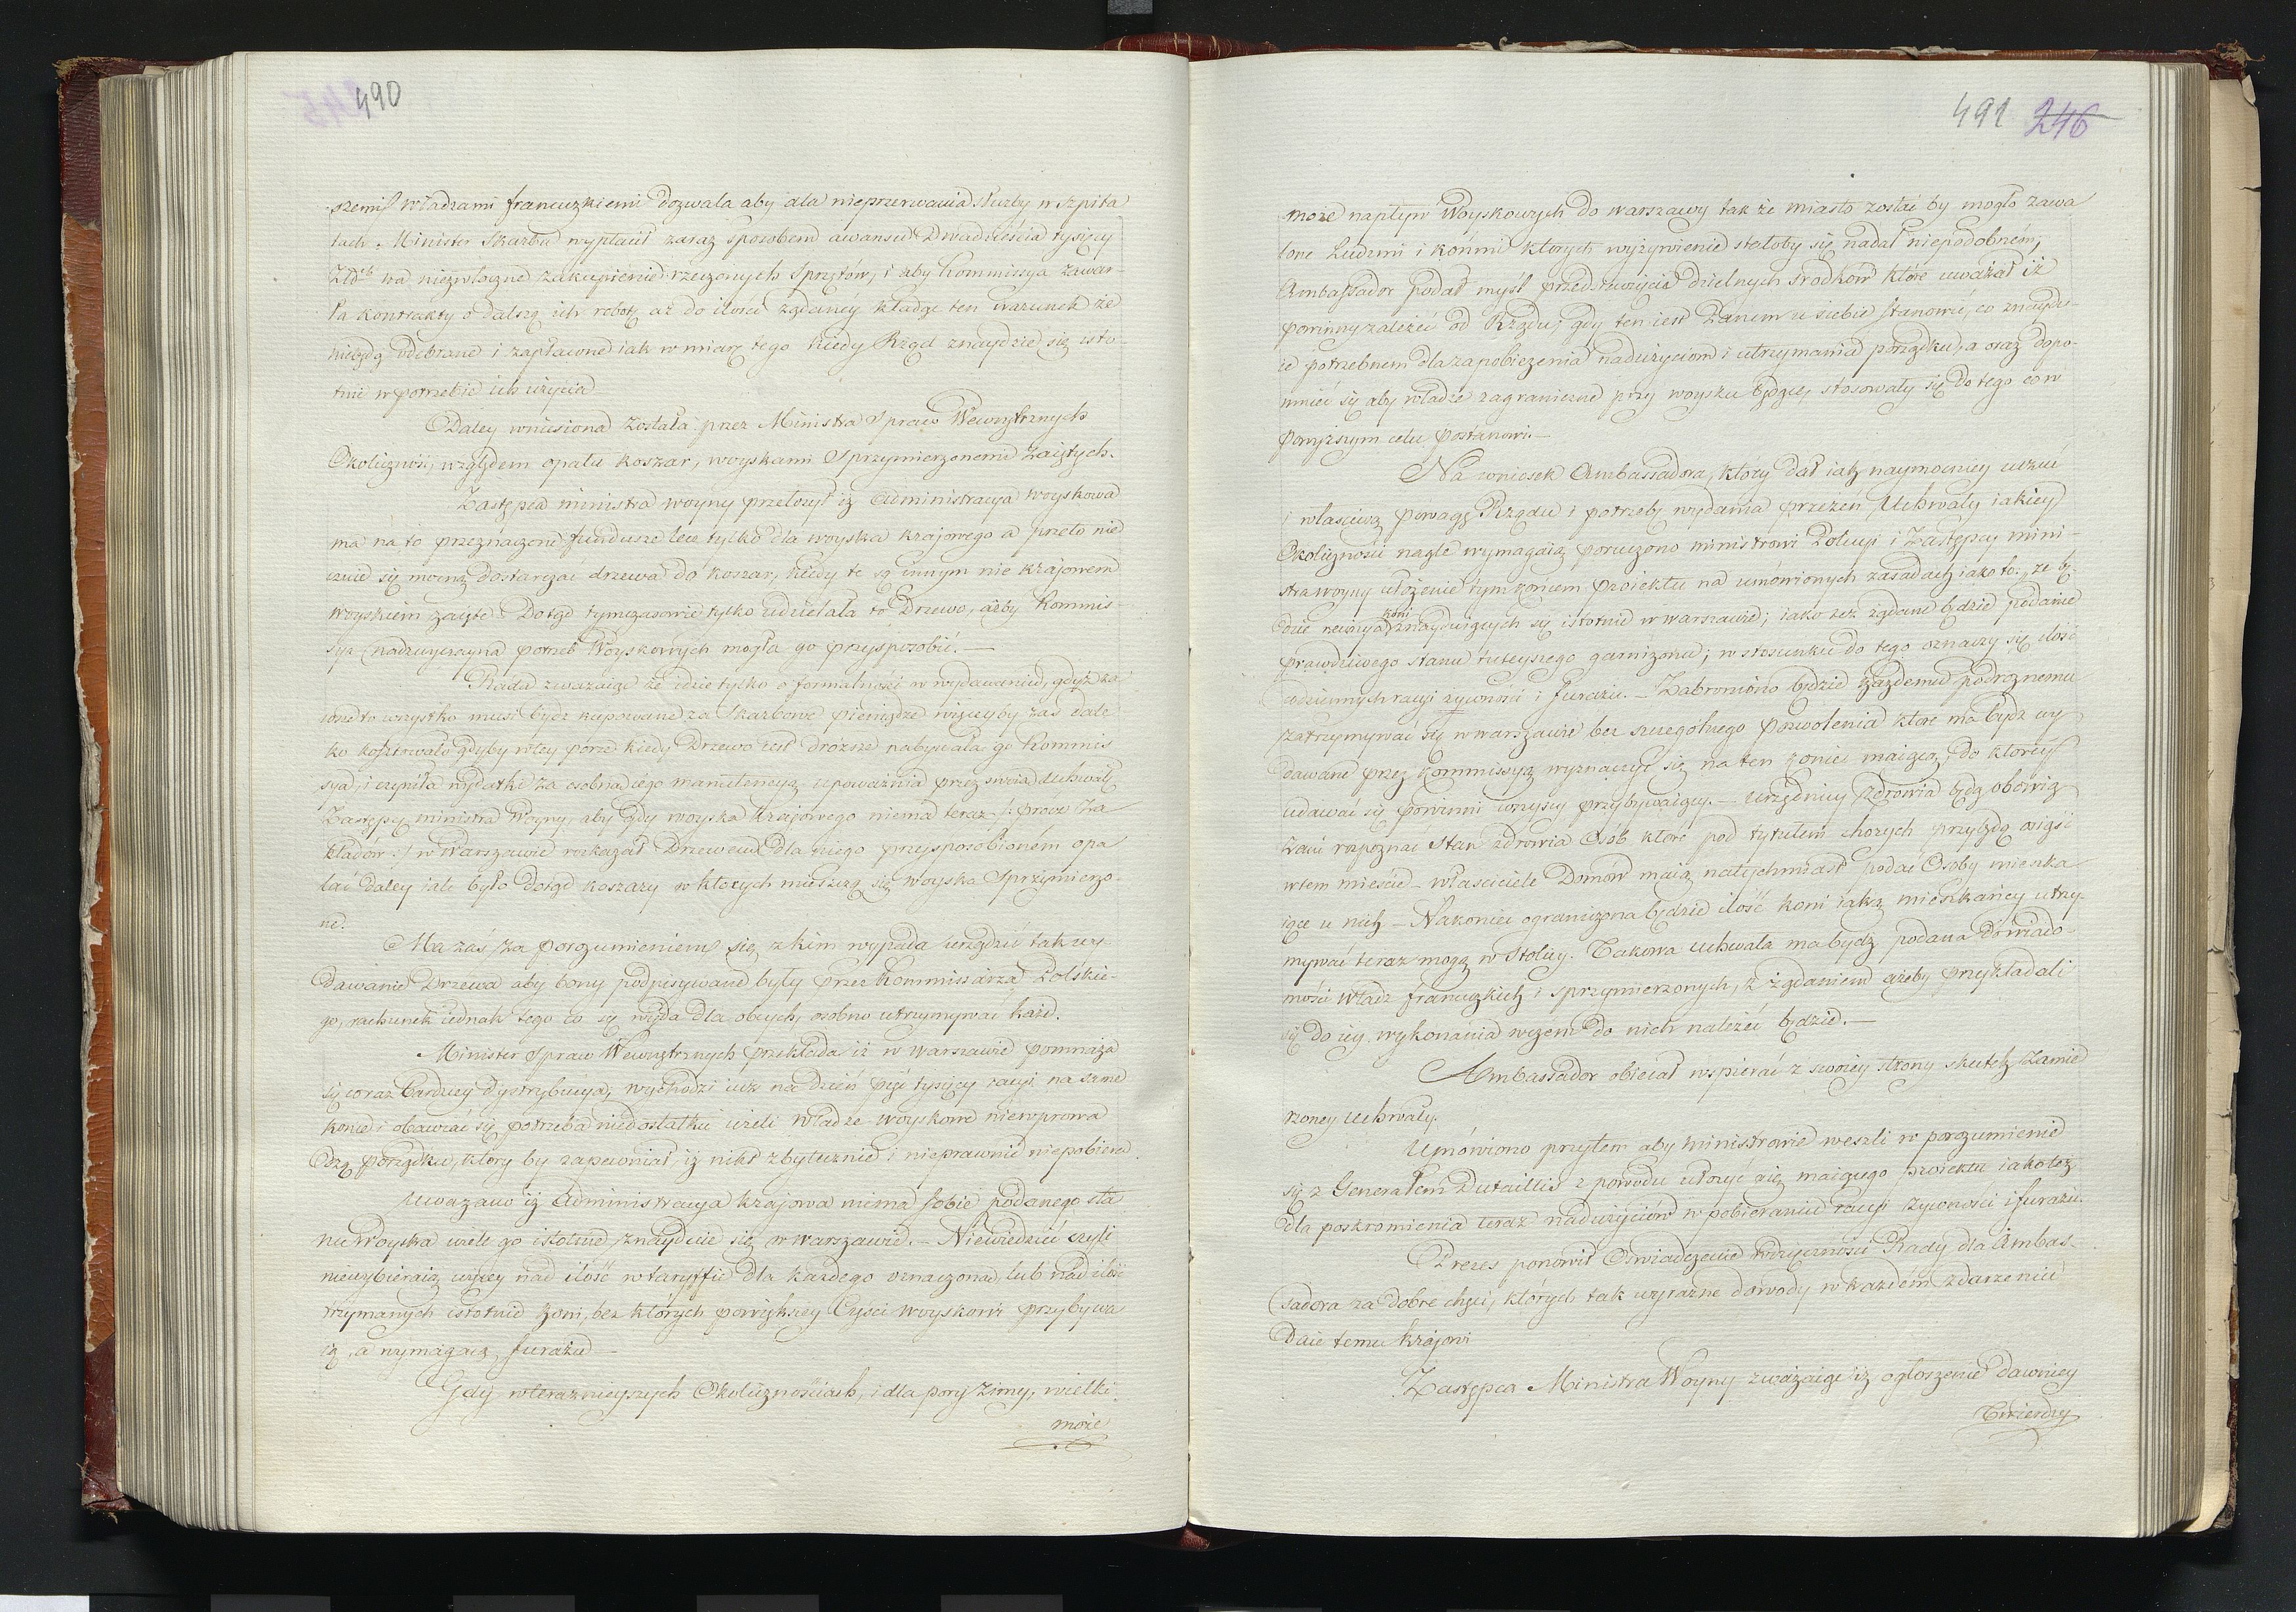 490
szemi władzami francuzkiemi dozwala aby dla nieprzerwania służby w szpita
lach. Minister Skarbu wypłacił zaraz sposobem awansu Dwadzieścia tysięcy
Złotch na niezwłoczne zakupienie rzeczonych Sprzętów, i aby Kommissya zawar-
ła kontrakty o dalszą ich robotę aż do ilości żądaney kładąc ten warunek że
niebędą odebrane i zapłacone iak w miarę tego kiedy Rząd znaydzie się isto-
tnie w potrzebie ich użycia
Daley wniesiona została przez Ministra Spraw Wewnętrznych
Okoliczność, względem opału koszar, woyskami Sprzymierzonemi zaiętych.
Zastępca ministra woyny przełożył iż Administracya woyskowa
ma na to przeznaczone fundusze lecz tylko dla woyska krajowego a przeto nie
czuie się mocną dostarczać drzewa do koszar, kiedy te są innym nie krajowem
woyskiem zaięte. Dotąd tymczasowie tylko udzielała to Drzewo, ażby Kommis-
sya Nadzwyczayna potrzeb Woyskowych mogła go przysposobić. —
Rada zważaiąc że idzie tylko o formalność w wydawaniu, gdyż za-
wsze to wszystko musi bydź kupowane za Skarbowe pieniądze więcey by zaś dale
ko kosztowało gdyby w tey porze kiedy Drzewo iest droższe nabywała go Kommis
sya, i czyniła wydatki za osobną iego manutencyą upoważnia przez swoią uchwałę
Zastępcę ministra Woyny, aby gdy woyska Krajowego niema teraz /: prócz Za
kładów :/ w Warszawie rozkazał Drzewem dla niego przysposobioném opa
lać daley iak było dotąd koszary w których mieszczą się woyska Sprzymierzo-
ne.
Ma zaś za porozumieniem się z kim wypada urządzić tak wy-
dawanie Drzewa aby bony podpisywane były przez Kommissarza Polskie-
go, rachunek iednak tego co się wyda dla obcych, osobno utrzymywać każe.
Minister Spraw Wewnętrznych przekłada iż w Warszawie pomnaża
się coraz bardziey dystrybucya; wychodzi iuż na dzień pięć tysięcy racyi na same
konie i obawiać się potrzeba niedostatku ieżeli Władze woyskowe niewprowa
dzą porządku, który by zapewniał iż nikt zbytecznie i nieprawnie niepobiera.
Uważano iż Administracya krajowa niema sobie podanego sta
nu Woyska wiele go istotnie znayduie się w Warszawie. — Niewiedzieć czyli
niewybieraią więcey nad ilość w taryffie dla każdego oznaczoną, lub nad ilość
trzymanych istotnie koni, bez których powiększey Części woyskowi przybywa
ią, a wymagaią furażu —
Gdy wteraznieyszych Okolicznościach, i dla pory zimy, wielki
może
491 246
może napływ Woyskowych do warszawy tak że miasto zostać by mogło zawa
lone Ludzmi i końmi których wyżywienie stałoby się nadal niepodobném;
Ambassador podał myśl przedsięwzięcia dzielnych środków które uważał iż
powinny zależeć od Rządu, gdy ten iest Panem u siebie stanowić, co znaydu-
ie potrzebnem dla zapobieżenia nadużyciom i utrzymania porządku, a oraz dopo-
mnieć się aby władze zagraniczne przy woysku będące, stosowały się do tego co w
powyższym celu postanowi. —
Na wniosek Ambassadora, który dał iak naymocniey uczuć
właściwą powagę Rządu i potrzebę wydania przezeń Uchwały iakiey
Okoliczności nagle wymagaią poruczono ministrowi Policyi i Zastępcy mini-
stra woyny ułożenie tym końcem proiektu na umówionych zasadach iako to: że bę-
dzie rewizya koni znayduiących się istotnie w warszawie; iako też żądane będzie podanie
prawdziwego stanu tuteyszego garnizonu; w stosunku do tego oznaczy się ilość
codziennych racyi żywności i furażu. — Zabroniono będzie każdemu podróżnemu
zatrzymywać się w warszawie bez szczególnego pozwolenia które ma bydz wy
dawane przez Kommissyą wyznaczyć się na ten koniec maiącą, do którey
udawać się powinni wszyscy przybywaiący. — Urzędnicy zdrowia będą obowią
zani rozpoznać stan zdrowia Osób które pod tytułem chorych przybędą osiąść
wtem mieście — właściciele Domów maią natychmiast podać Osoby mieszka
iące u nich — Nakoniec ograniczona będzie ilość koni iaką mieszkańcy utrzy-
mywać teraz mogą w Stolicy. Takowa uchwała ma bydź podana do wiado-
mości Władz francuzkich i sprzymierzonych, z żądaniem ażeby przykładali
się do iey wykonania wczém do nich należeć będzie. —
Ambassador obiecał wspierać z swoiey strony skutek zamie
rzoney uchwały.
Umówiono przytem aby ministrowie weszli w porozumienie
się z Generałem Dutaillis z powodu ułożyć się maiącego proiektu iako też
dla poskromienia teraz nadużyciów w pobieraniu racyi żywności i furażu.
Prezes ponowił Oświadczenie wdzięczności Rady dla Ambas-
sadora za dobre chęci, których tak wyraźne dowody w każdém zdarzeniu
daie temu krajowi
Zastępca Ministra Woyny zważaiąc iż ogłoszenie dawniey
Twierdzy